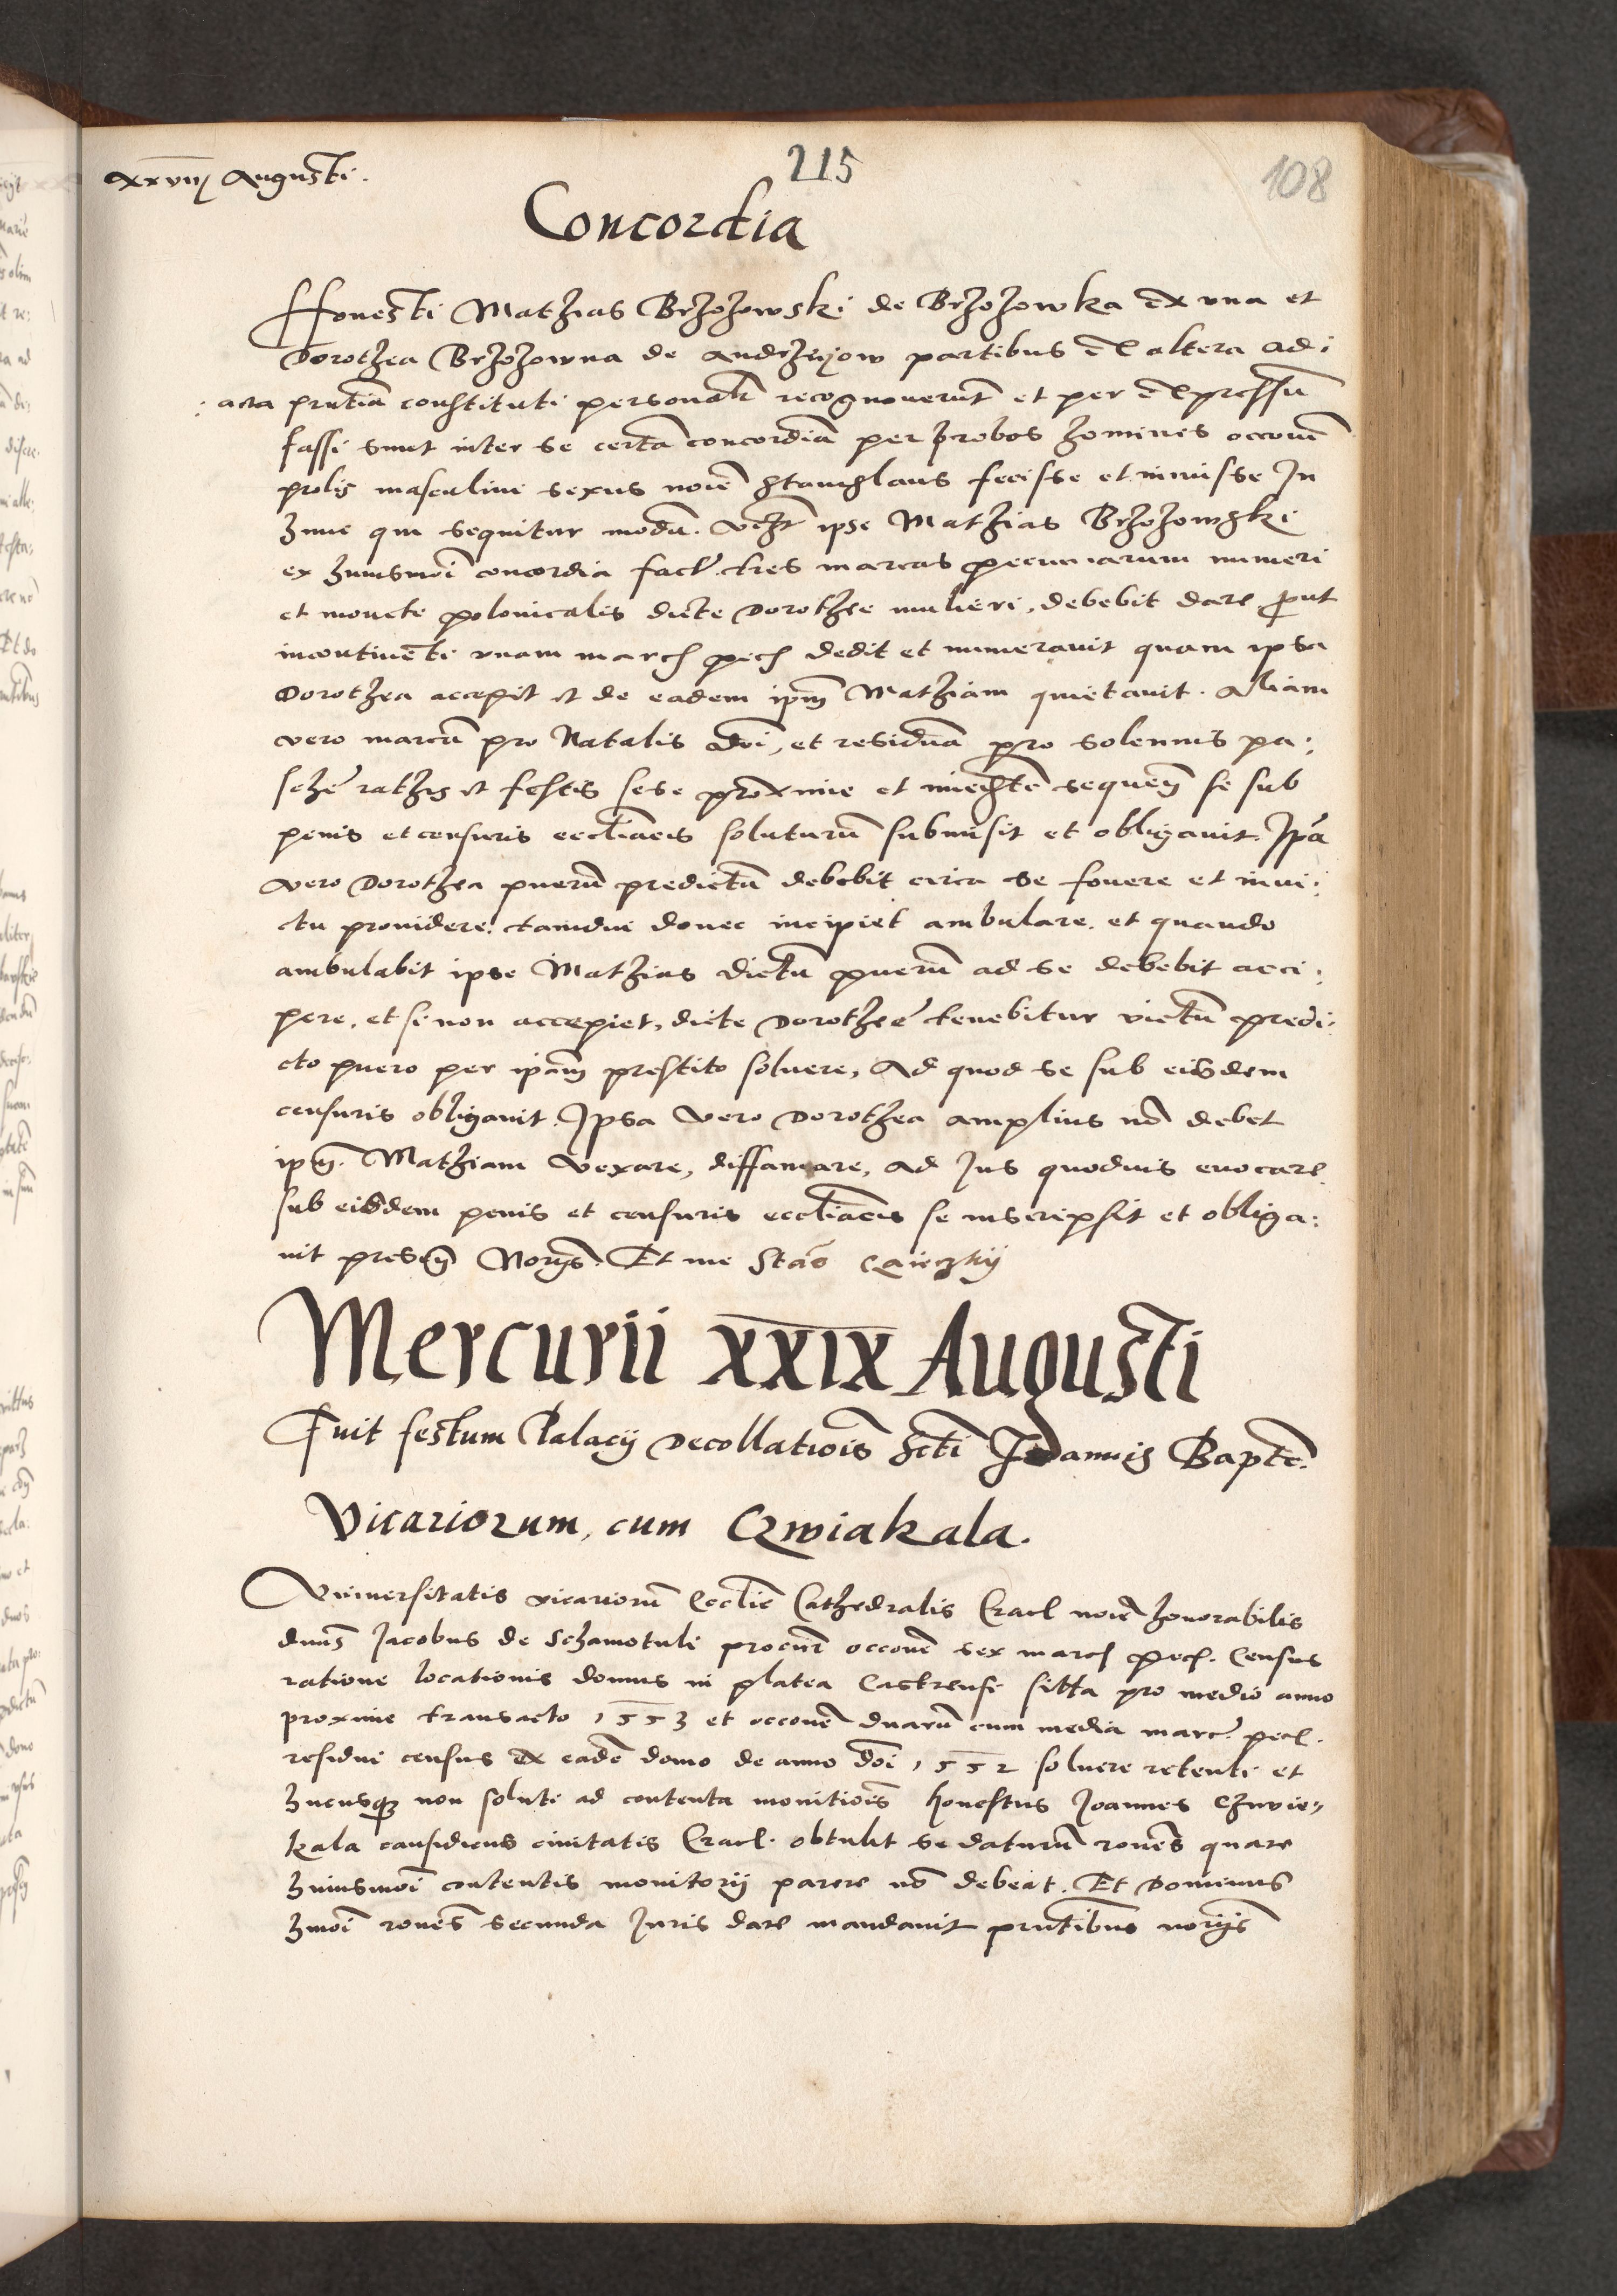 xxviij Augusti.
215
108
Concordia
Honesti Mathias Brzozowski de Brzozowka ex vna et
Dorothea Brzozowna de Andrzeyow partibus ex altera ad:
:acta pñtia constituti personalr recognouerũt et per expressũ
fassi sunt inter se certã concordiã per probos homines occoñe
prolis masculini sexus noĩe Stanislaus fecisse et iniuisse In
hunc qui sequitur modũ. vczt ipse Mathias Brzozowski
ex huiusmoi concordia facta tres marcas pecuniarum numeri
et monete polonicalis dicte Dorothee mulieri, debebit dare prout
incontinẽti vnam marcã pecũ dedit et numerauit quam ipsa
Dorothea accepit et de eadem ipm Mathiam quietauit. Aliam
vero marcã pro Natalis dñi, et residuã pro solennis pa:
schẽ festis sese proxime et sequeñ se sub
penis et censuris eccliacis soluturũ submisit et obligauit. Ipa
vero Dorothea puerũ predictũ debebit circa se fouere et in vi:
ctu prouidere, tamdiu donec incipiet ambulare. et quando
ambulabit ipse Mathias dictũ puerũ ad se debebit acci:
pere, et si non accepiet, dicte Dorotheẽ tenebitur victũ predi:
cto puero per ipam prestito soluere, Ad quod se sub eisdem
censuris obligauit. Ipsa vero Dorothea amplius nõ debet
ipm. Mathiam vexare, diffamare, ad Jus quoduis euocare
sub eisdem penis et censuris eccliacis se inscripsit et obliga:
uit preseñ Norijs. Et me Stão
Mercurii XXIX Augusti
Fuit festum Palacij Decollatiois Scti Joannis Bapte.
Vicariorum, cum Czwiakala.
Vniuersitatis vicariorũ Ecclie Cathedralis Cracl noĩe honorabilis
dnus Jacobus de Schamotuli procur occoñe sex marcl pecl. Census
ratione locationis domus in platea Castrensi sitta pro medio anno
proxime transacto 1553 et occoñe duarũ cum media marc. pecl.
residui census ex eadẽ domo de anno dñi 1552 soluere retenti et
hucusq; non soluti ad contenta monitiois honestus Joannes Czwie,,
kala causidicus ciuitatis Cracl. obtulit se daturũ roñes quare
huiusmoi contentis monitorij parere nõ debeat. Et Dominus
hmoi roñes secunda Juris dare mandauit pñtibus norijs